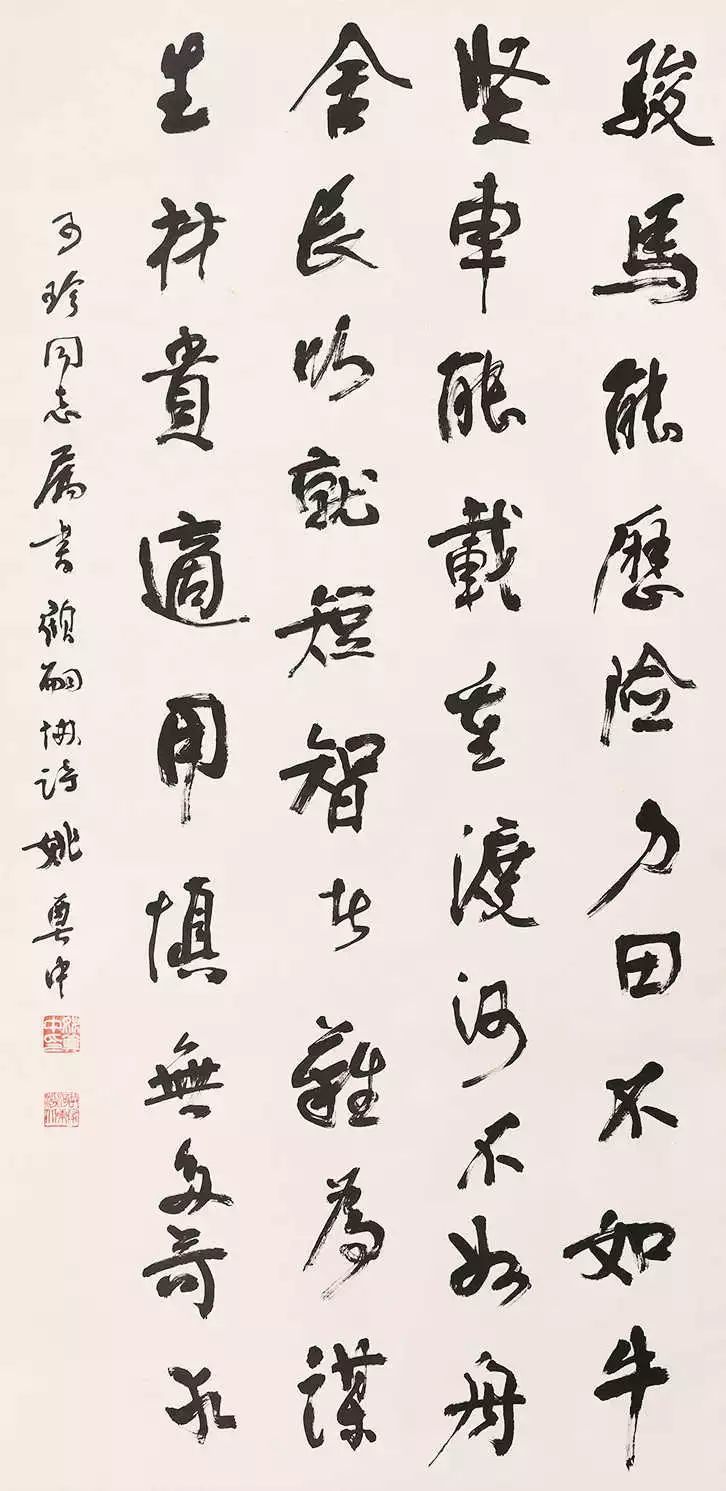 駿馬能歷險力田不如牛
堅車能載重渡河不如舟
舍長以就短智者難為謀
生材貴適用慎無多苛求
珍同志屬書顧嗣協詩姚奠中
姚奠中印